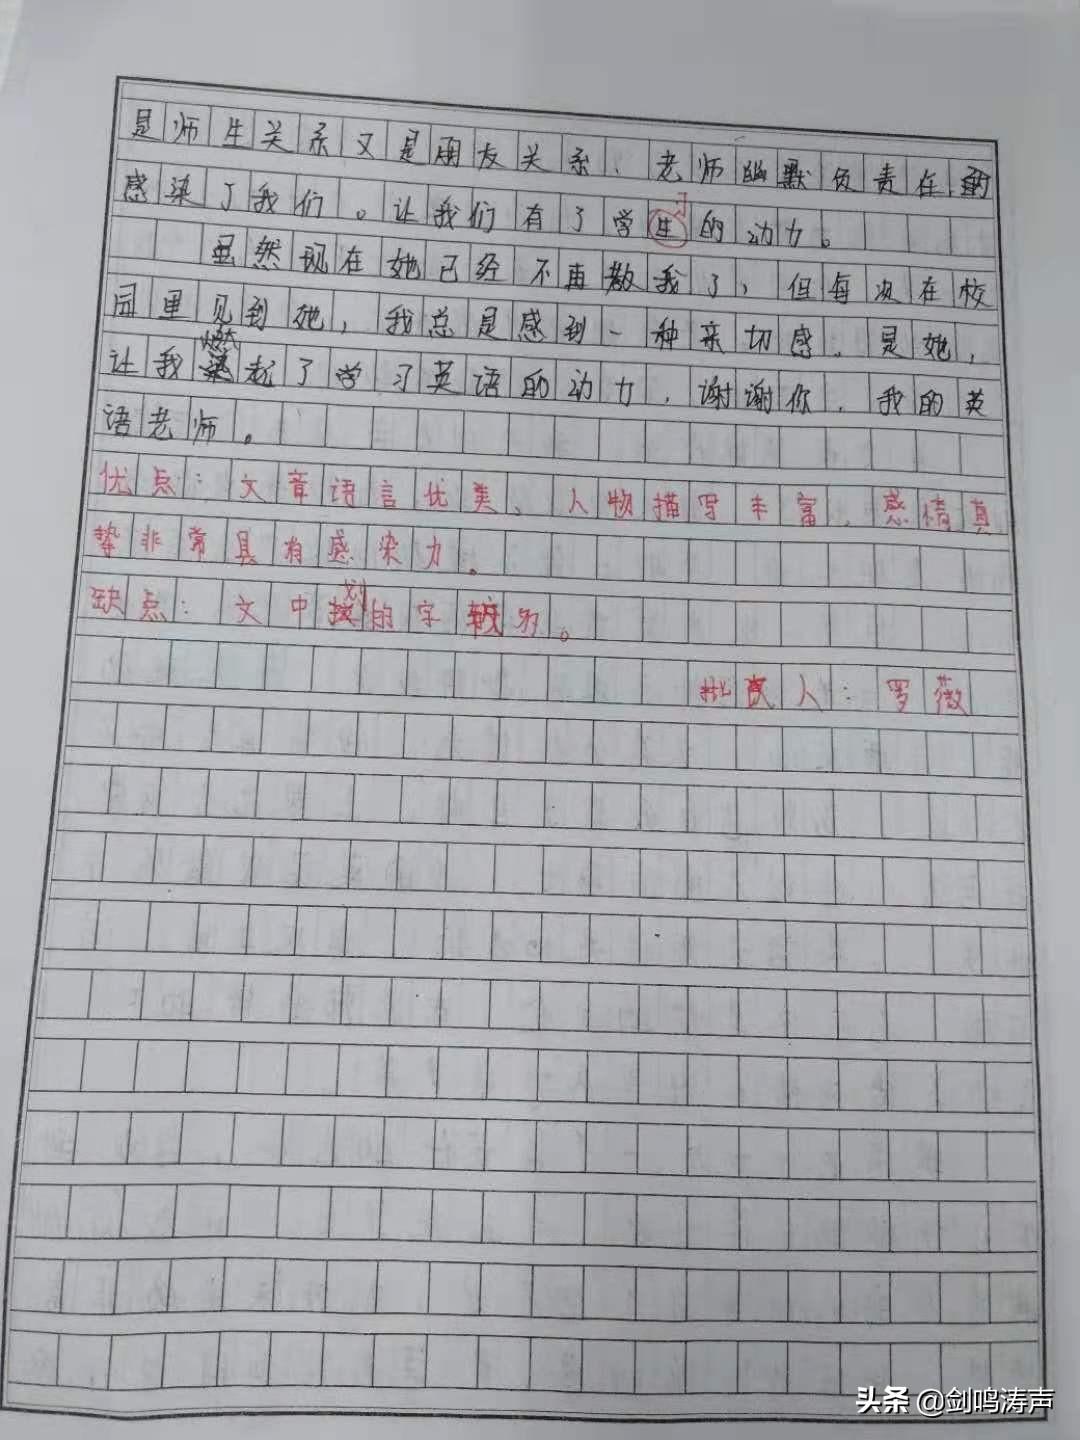 是师生关系又是朋友关系、老师幽默负责任的
感染了我们。让我们有了学生的动力。
习
虽然现在她已经不再教我了，但每次在校
园里见到她，我总是感到一种亲切感。是她，
让我燃起了学习英语的动力，谢谢你，我的英
语老师。
优点：文章语言优美、人物描写丰富，感情真
挚非常具有感染力。
缺点：文中划的字较多。
批改人：罗薇
头条 @剑鸣涛声